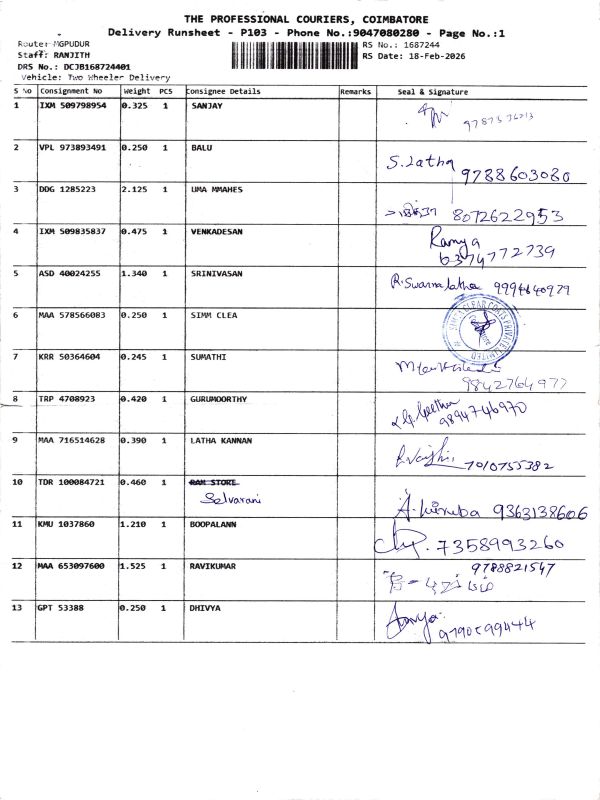 THE PROFESSIONAL COURIERS, COIMBATORE
Delivery Runsheet - P103 - Phone No.:9047080280 - Page No.:1
Route: MGPUDUR
Staff: RANJITH
DRS No.: DCJB168724401
Vehicle: Two Wheeler Delivery
RS No.: 1687244
RS Date: 18-Feb-2026
S No Consignment No Weight PCS Consignee Details Remarks Seal & Signature
1 IXM 509798954 0.325 1 SANJAY
2 VPL 973893491 0.250 1 BALU S.Latha 9788603080
3 DDG 1285223 2.125 1 UMA MMAHES 8072622953
4 IXM 509835837 0.475 1 VENKADESAN Ramya 6374772739
5 ASD 40024255 1.340 1 SRINIVASAN R.Swarnalatha 9994640979
6 MAA 578566083 0.250 1 SIMM CLEA
7 KRR 50364604 0.245 1 SUMATHI 9842764977
8 TRP 4708923 0.420 1 GURUMOORTHY Geetha 9894746970
9 MAA 716514628 0.390 1 LATHA KANNAN 7010755382
10 TDR 100084721 0.460 1 RAM STORE
Selvarani 9363138606
11 KMU 1037860 1.210 1 BOOPALANN 7358993260
12 MAA 653097600 1.525 1 RAVIKUMAR 9788821547
13 GPT 53388 0.250 1 DHIVYA